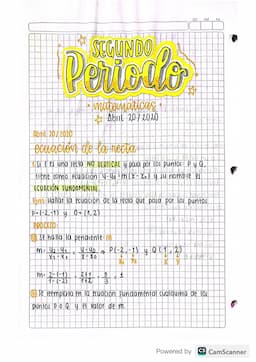 SEGUNDO
Periodo
• matemáticas •
Abril 20/2020
Abril 20/2020
ecuación de la recta
Si l es una recta NO VERTICAL y pasa por los puntos P y Q,
tiene como ecuación y-y₀=m(x-x₀) y su nombre es
ECUACIÓN FUNDAMENTAL
Hallar la ecuación de la recta que pasa por los puntos
P=(-2,-1) y Q=(1,2)
PROCESO:
Se halla la pendiente m
P(-2,-1) y Q(1,2)
Se remplaza en la ecuación fundamental cualquiera de los
puntos P o Q y el valor de m.
Powered by CS CamScanner